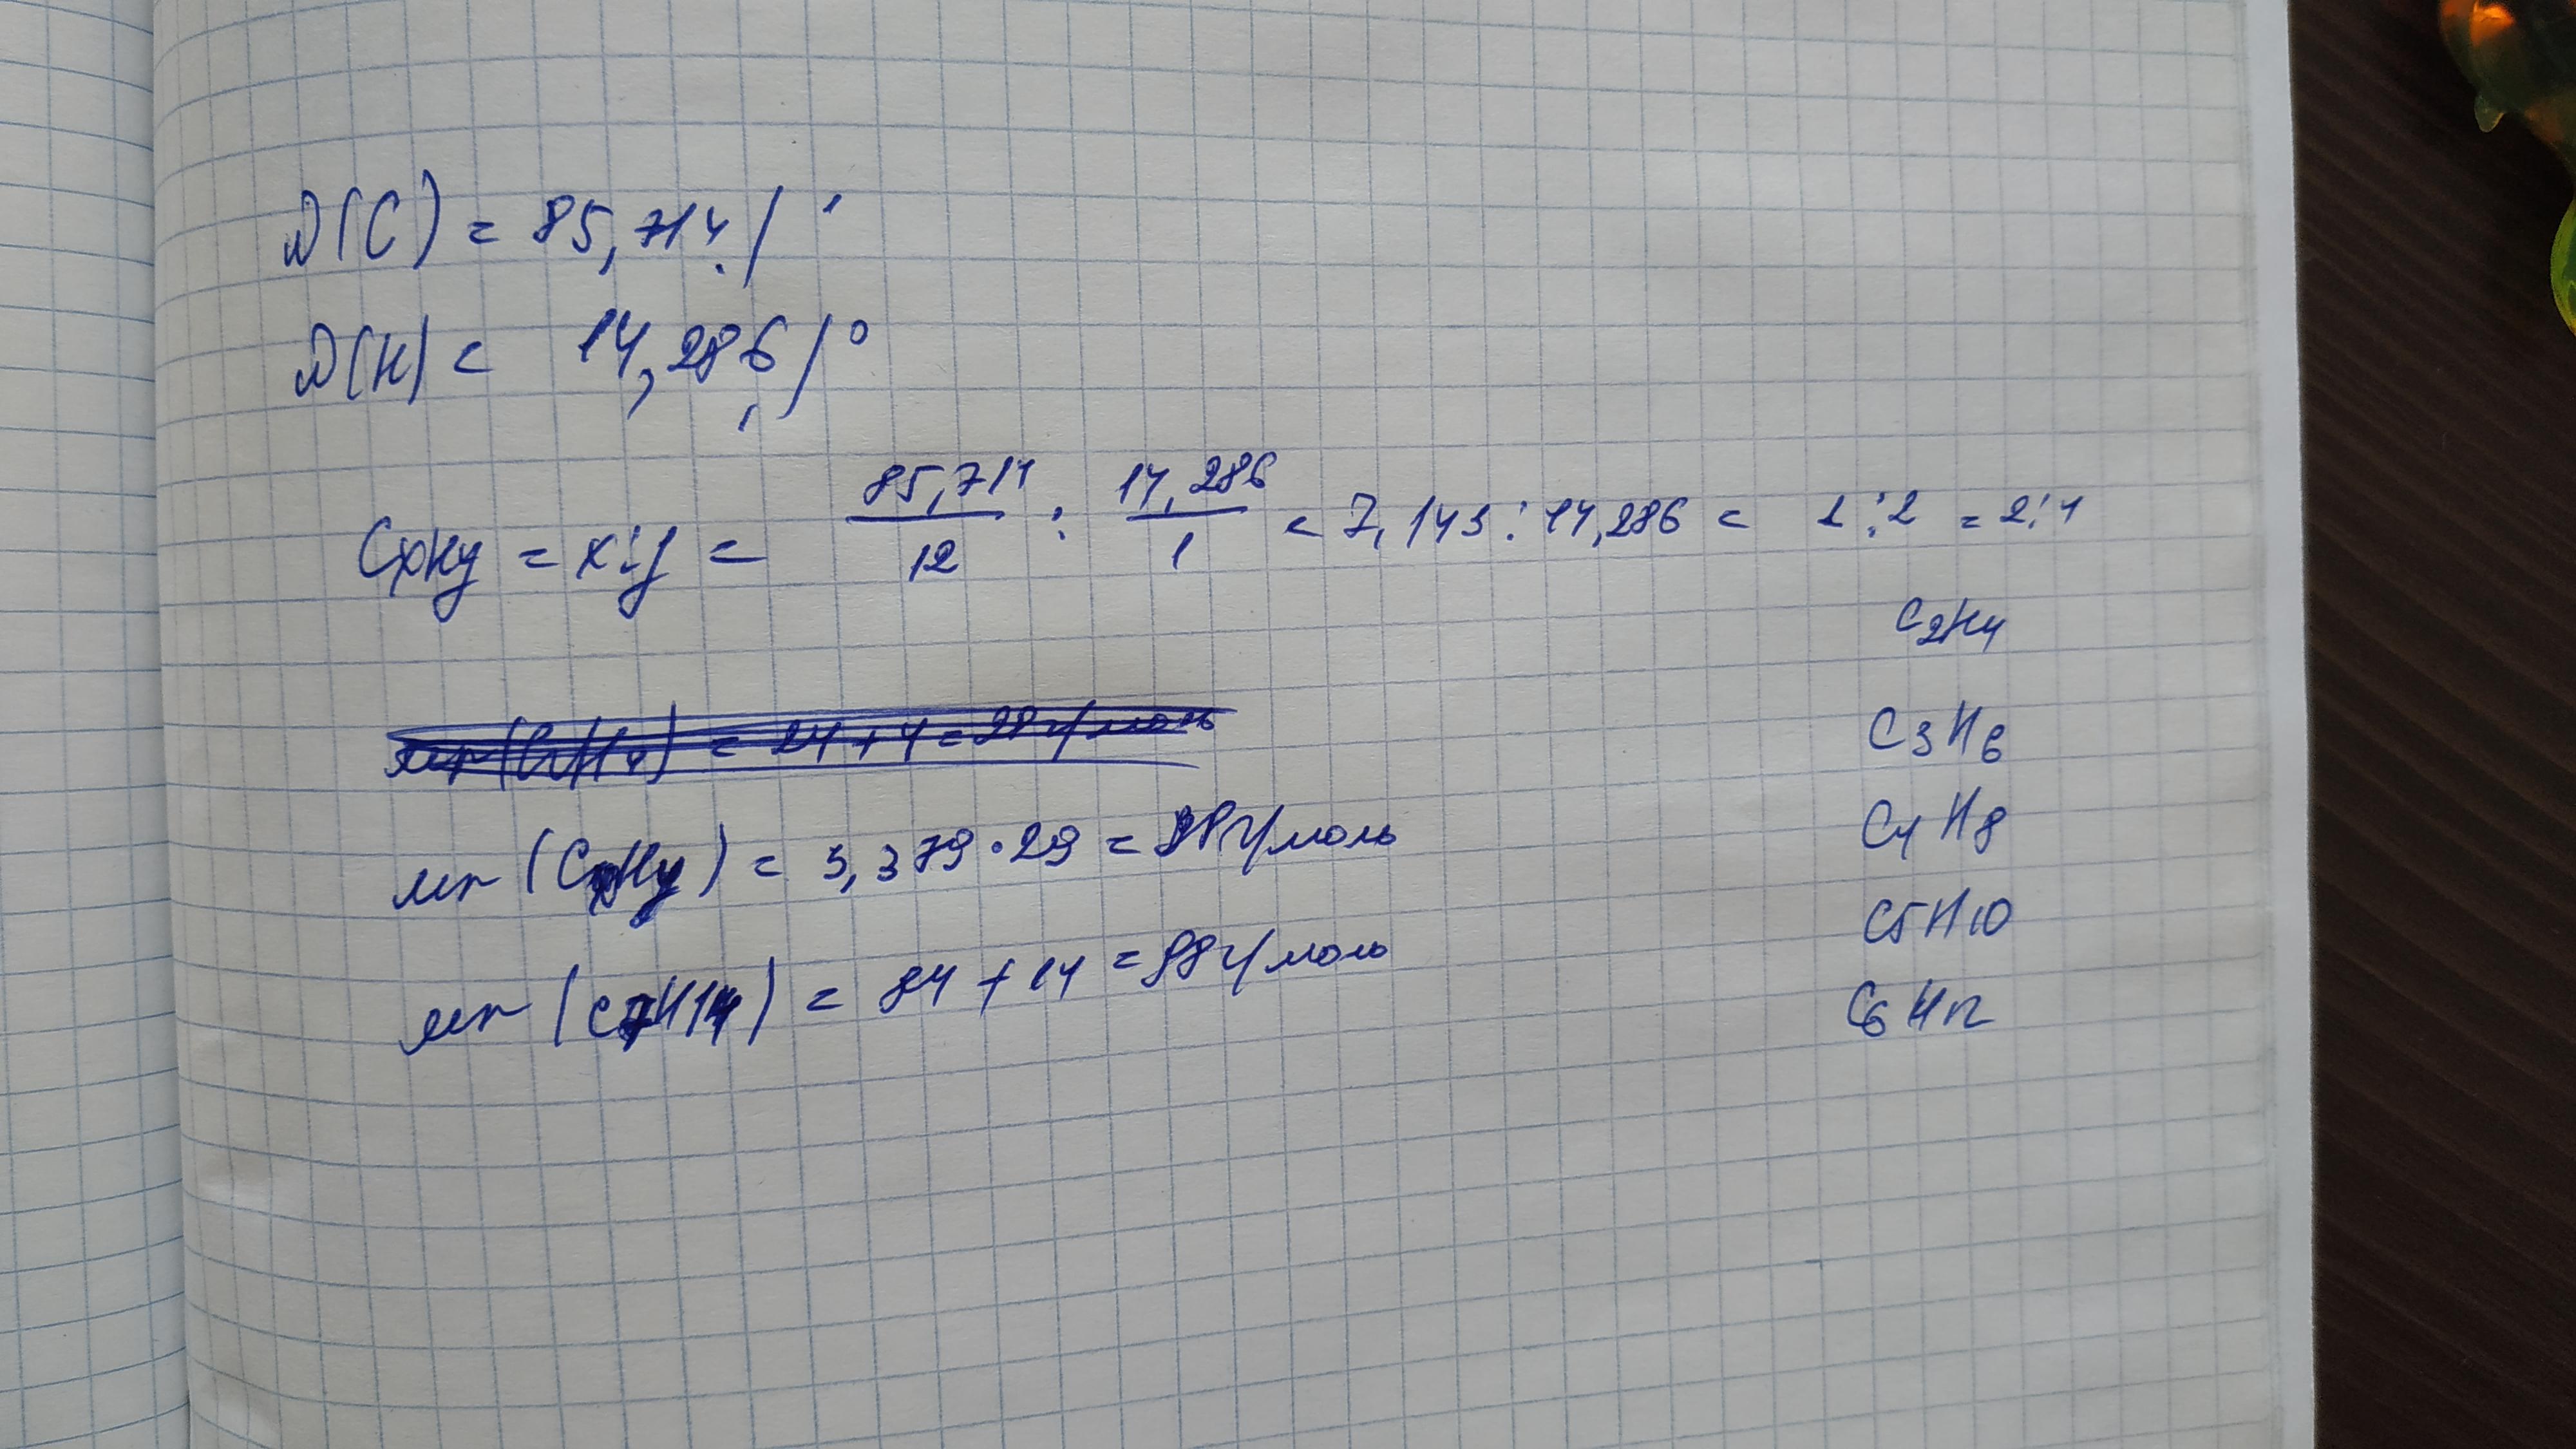 D(C) = 85,714%
D(H) = 14,286%
CxHy = x:y = 85,714/12 : 14,286/1 = 7,143:14,286 = 1:2 = 2:4
C2H4
Mr(C2H4) = 24+4=28г/моль
C3H6
Mr(CxHy) = 3,379·29=98г/моль
C4H8
C5H10
Mr(C7H14) = 84+14=98г/моль
C6H12